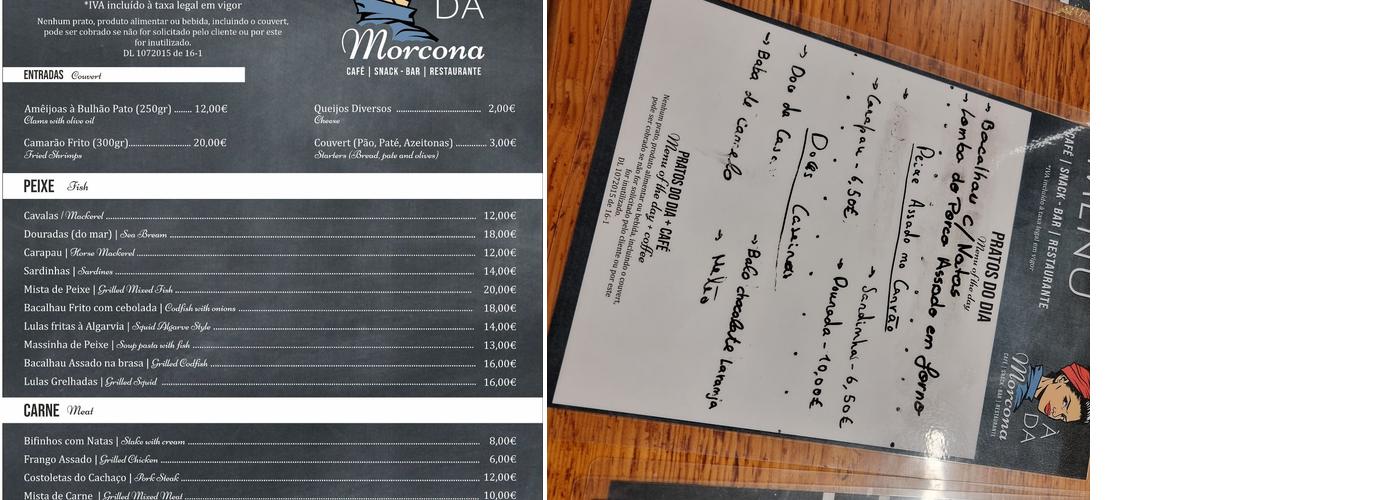 *IVA incluído à taxa legal em vigor
Nenhum prato, produto alimentar ou bebida, incluindo o couvert,
pode ser cobrado se não for solicitado pelo cliente ou por este
for inutilizado.
DL 1072015 de 16-1
DA
Morcona
CAFÉ | SNACK - BAR | RESTAURANTE
ENTRADAS Couvert
Amêijoas à Bulhão Pato (250gr) ........ 12,00€
Clams with olive oil
Camarão Frito (300gr) 20,00€
Fried Shrimps
Queijos Diversos 2,00€
Cheese
Couvert (Pão, Paté, Azeitonas) 3,00€
Starters (Bread, pate and olives)
PEIXE Fish
Cavalas / Mackerel 12,00€
Douradas (do mar) | Sea Bream 18,00€
Carapau | Horse Mackerel 12,00€
Sardinhas | Sardines 14,00€
Mista de Peixe | Grilled Mixed Fish 20,00€
Bacalhau Frito com cebolada | Codfish with onions 18,00€
Lulas fritas à Algarvia | Squid Algarve Style 14,00€
Massinha de Peixe | Soup pasta with fish 13,00€
Bacalhau Assado na brasa | Grilled Codfish 16,00€
Lulas Grelhadas | Grilled Squid 16,00€
CARNE Meat
Bifinhos com Natas | Stake with cream 8,00€
Frango Assado | Grilled Chicken 6,00€
Costoletas do Cachaço | Pork Steak 12,00€
Mista de Carne | Grilled Mixed Meat 10,00€
MENU
DA
Morcona
CAFÉ | SNACK - BAR | RESTAURANTE
*IVA incluído à taxa legal em vigor
PRATOS DO DIA
Menu of the day
→ Bacalhau c/ Natas
→ Lombo de Porco Assado em forno
Peixe Assado no Carvão
→ Carapau - 6,50€ → Sardinha - 6,50€
→ Dourada - 10,00€
Doces Caseiros
→ Doce da Casa
→ Baba de Camelo → Bolo chocolate laranja
→ Melão
PRATOS DO DIA + CAFÉ
Menu of the day + coffee
Nenhum prato, produto alimentar ou bebida, incluindo o couvert,
pode ser cobrado se não for solicitado pelo cliente ou por este
for inutilizado.
DL 1072015 de 16-1